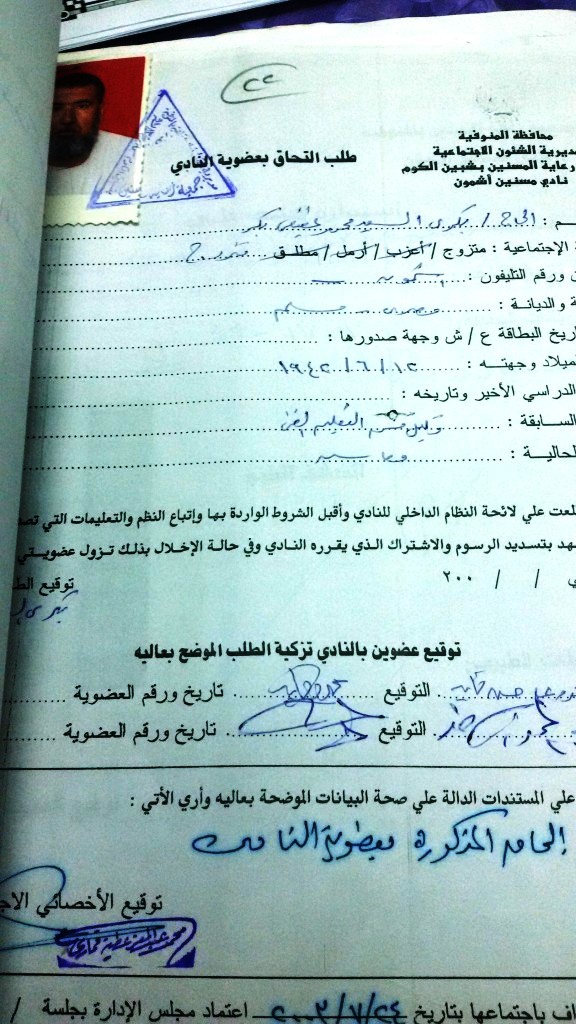 ٢٢
محافظة المنوفية
مديرية الشئون الاجتماعية
رعاية المسنين بشبين الكوم
نادي مسنين أشمون
طلب التحاق بعضوية النادي
م : الحاج / بكرى السيد
الإجتماعية : متزوج / أعزب / أرمل / مطلق متزوج
ن ورقم التليفون :
ة والديانة : مصرى مسلم
اريخ البطاقة ع / ش وجهة صدورها :
ميلاد وجهته : ١٢ / ٦ / ١٩٤٢
الدراسي الأخير وتاريخه :
السابقة : وكيل التعليم الفنى
حالية :
لعت علي لائحة النظام الداخلي للنادي وأقبل الشروط الواردة بها وإتباع النظم والتعليمات التي تص
هد بتسديد الرسوم والاشتراك الذي يقرره النادي وفي حالة الإخلال بذلك تزول عضويتي
ي / / ٢٠٠
توقيع الط
توقيع عضوين بالنادي تزكية الطلب الموضع بعاليه
التوقيع تاريخ ورقم العضوية
التوقيع تاريخ ورقم العضوية
علي المستندات الدالة علي صحة البيانات الموضحة بعاليه وأري الأتي :
إلحاق المذكورة بعضوية النادى
توقيع الأخصائي الاج
اف باجتماعها بتاريخ ٢٠٠٣/٧/٢٤ اعتماد مجلس الإدارة بجلسة /